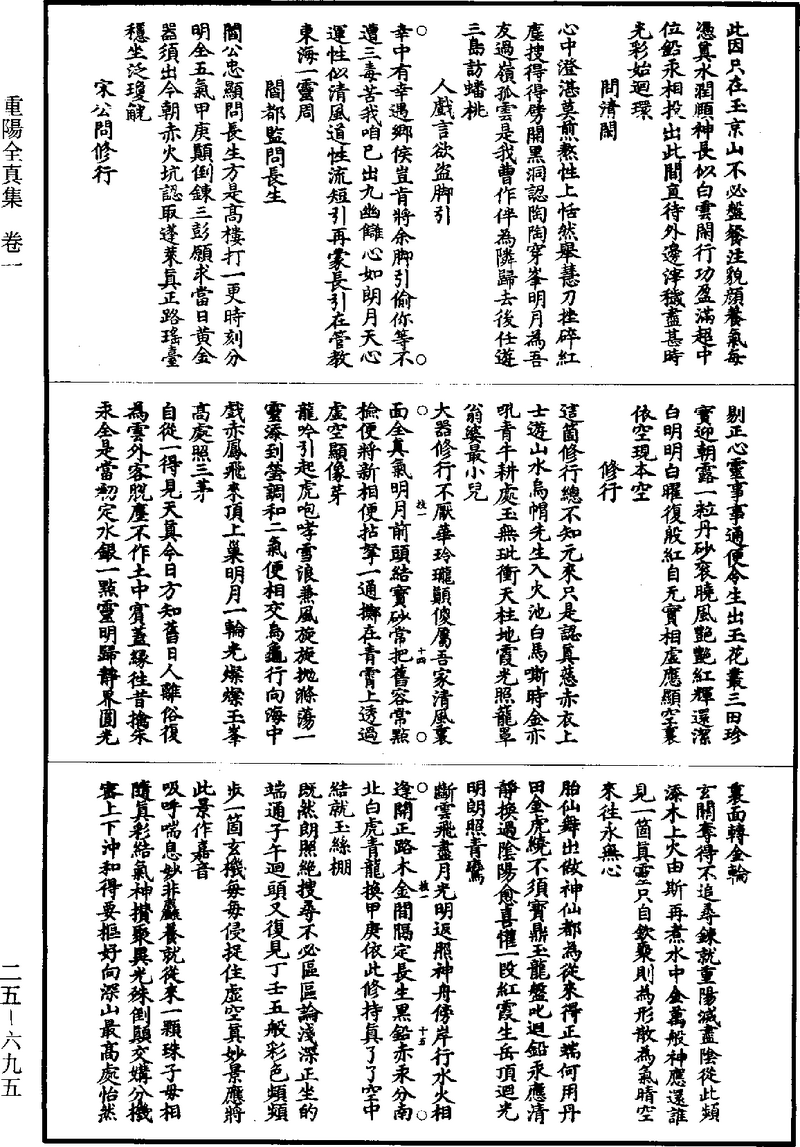 重陽全真集 卷一
二五-六九五
此因只在玉京山不必盤餐注貌顏養氣每
憑真水潤頤神長似白雲閑行功盈滿超中
位鉛汞相投出此間直待外邊滓穢盡甚時
光彩始迴環
問清閑
心中澄湛莫煎熬性上恬然舉慧刀挫碎紅
塵搜得得劈開黑洞認陶陶穿峯明月為吾
友過嶺孤雲是我曹作伴為隣歸去後仕遊
三島訪蟠桃
人戲言欲盜脚引
幸中有幸遇鄉侯豈肯將余脚引偷你等不
遭三毒苦我咱已出九幽讎心如朗月天心
運性似清風道性流短引再蒙長引在管教
東海一靈周
閻都監問長生
閻公忠顯問長生方是高樓打一更時刻分
明全五氣甲庚顛倒鍊三彭願求當日黃金
器須出今朝赤火坑認取蓬萊真正路瑤臺
穩坐泛瓊觥
宋公問修行
剔正心靈事事通便令生出玉花叢三田珍
寶迎朝露一粒丹砂裛曉風艷艷紅輝還潔
白明明白曜復般紅自无實相虛應顯空裏
依空現本空
修行
這箇修行總不知元來只是認真慈赤衣上
士遊山水烏帽先生入火池白馬嘶時金亦
吼青牛耕處玉無玼衝天柱地霞光照籠罩
翁婆最小兒
大器修行不厭華玲瓏顛傻屬吾家清風裏
面全真氣明月前頭結寶砂常把舊容常點
檢便將新相便拈拏一通擲在青霄上透過
虛空顯像芽
龍吟引起虎咆哮雪浪兼風旋旋拋滌蕩一
靈添到螢調和二氣便相交烏龜行向海中
戲赤鳳飛來頂上巢明月一輪光燦燦玉峯
高處照三茅
自從一得見天真今日方知舊日人離俗復
為雲外客脫塵不作土中賓蓋緣往昔擒朱
汞全是當初定水銀一點靈明歸靜界圓光
裏面轉金輪
玄關奪得不追尋鍊就重陽滅盡陰從此頻
添木上火由斯再煮水中金萬般神應還誰
見一箇真靈只自欽聚則為形散為氣晴空
來往永無心
胎仙舞出做神仙都為從來得正端何用丹
田金虎繞不須寶鼎玉龍盤叱迴鉛汞應清
靜換過陰陽愈喜懽一段紅霞生岳頂迴光
明朗照青鸞
斷雲飛盡月光明返照神舟傍岸行水火相
逢開正路木金間隔定長生黑鉛赤汞分南
北白虎青龍換甲庚依此修持真了了空中
結就玉絲棚
既然朗照絕搜尋不必區區論淺深正坐的
端通子午迴頭又復見丁壬五般彩色頻頻
步一箇玄機每每侵捉住虛空真妙景應將
此景作嘉音
吸呼喘息妙非麤養就從來一顆珠子母相
隨真彩結氣神攢聚異光殊倒顛交媾分機
密上下沖和得要樞好向深山最高處怡然